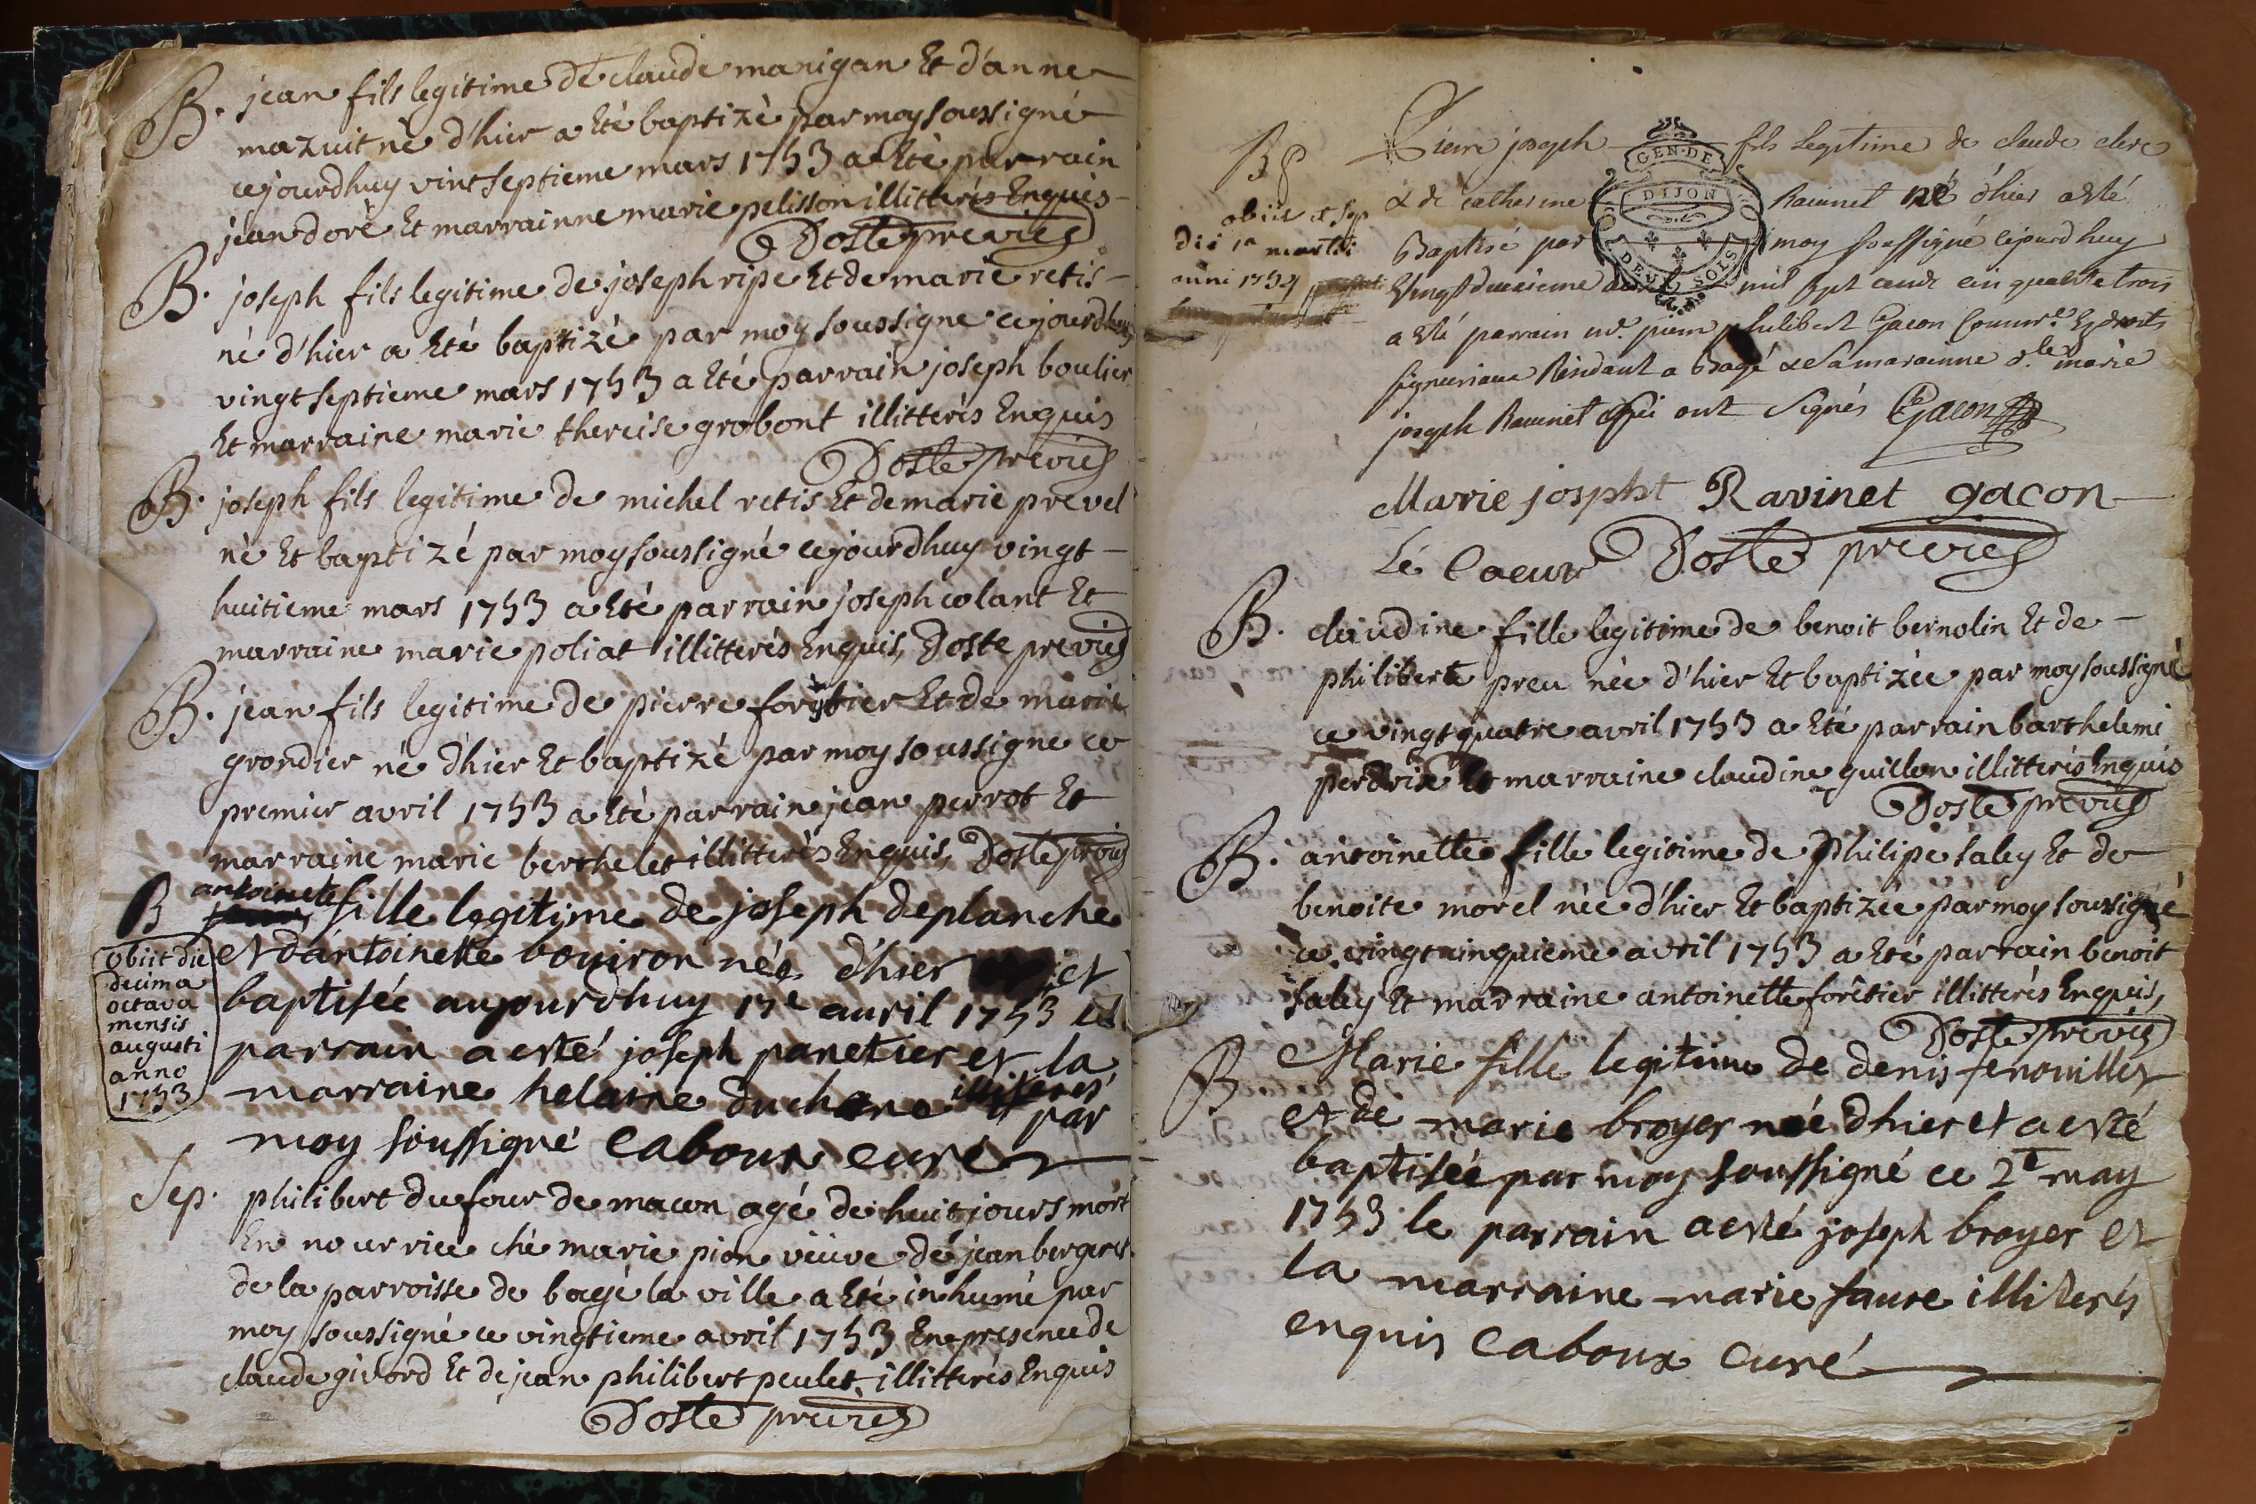 B. jean fils legitime de claude manigan Et d'anne
mazuit né d'hier a Eté baptizé par moy soussigné
cejourdhuy vint septieme mars 1753 a Eté parrain
jean doré Et marrainne marie pelisson illitterés Enquis
Doste previes
B. joseph fils legitime de joseph ripe Et de marie retis
né d'hier a Eté baptizé par moy soussigne cejourdhuy
vingt septieme mars 1753 a Eté parrain joseph boulier
Et marraine marie thereise grobont illitterés Enquis
Doste previes
B. joseph fils legitime de michel retis Et de marie prevel
né Et baptizé par moy soussigné cejourdhuy vingt
huitieme mars 1753 a Eté parrain joseph colant Et
marraine marie poliat illitterés Enquis, Doste previes
B. jean fils legitime de pierre foritier Et de marie
grondier né d'hier Et baptizé par moy soussigne ce
premier avril 1753 a Eté parrain jean perrot Et
marraine marie berthelet illitterés Enquis, Doste previes
B antoinette fille legitime de joseph deplanche
et d'antoinette bouiron née d'hier et
baptisée aujourdhuy 17e auril 1753 Et
parrain a esté joseph panetier et la
marraine helaine duchene illiterés par
moy soussigné Caboux curé
obiit die
decima
octava
mensis
augusti
anno
1753
Sep. philibert dufour de macon agé de huit jours mort
En nourrice ché marie pion veuve de jean bergeret
de la parroisse de bagé la ville a Eté inhumé par
moy soussigné ce vingtieme avril 1753 En presence de
claude givord Et de jean philibert peulet illitterés Enquis
Doste previes
Pierre joseph fils legitime de claude clerc
& de catherine Ravinet né d'hier a esté
Baptisé par moy soussigné cejourdhuy
Vingt deuxieme mil sept cents cinquante trois
a esté parrain mr. pierre philibert Gacon Commre. Es droits
seigneuriaux Residant a Bagé & la maraine dlle. marie
joseph Ravinet qui ont signés Gacon
B
obiit et sep
die 1a martii
anni 1754
GEN. DE
DIJON
DEUX SOLS
Marie jospht Ravinet gacon
Lé Coeur Doste previes
B. claudine fille legitime de benoit bernolin Et de
philiberte preu née d'hier Et baptizée par moy soussigné
ce vingt quatre avril 1753 a Eté parrain barthelemi
perdrix Et marraine claudine guillon illitterés Enquis
Doste previes
B. antoinette fille legitime de philipe saley Et de
benoite morel née d'hier Et baptizée par moy soussigné
ce vingt cinquieme avril 1753 a Eté parrain benoit
saley Et marraine antoinette forêtier illitterés Enquis,
Doste previes
B Marie fille legitime de denis fenouillet
et de marie broyer née dhier et a esté
baptisée par moy soussigné ce 2e may
1753 le parrain a esté joseph broyer et
la marraine marie faure illiterés
enquis Caboux Curé